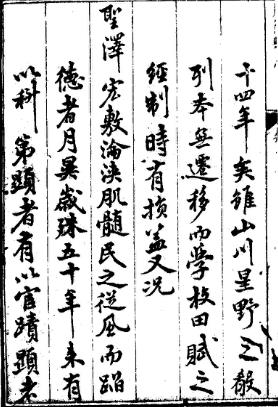 十四年矣雖山川星野之殽
列本無遷移而學校田賦之
經制時有損益又况
聖澤宏敷淪浹肌髓民之從風而蹈
德者月異歲殊五十年來有
以科第顯者有以宦蹟顯者